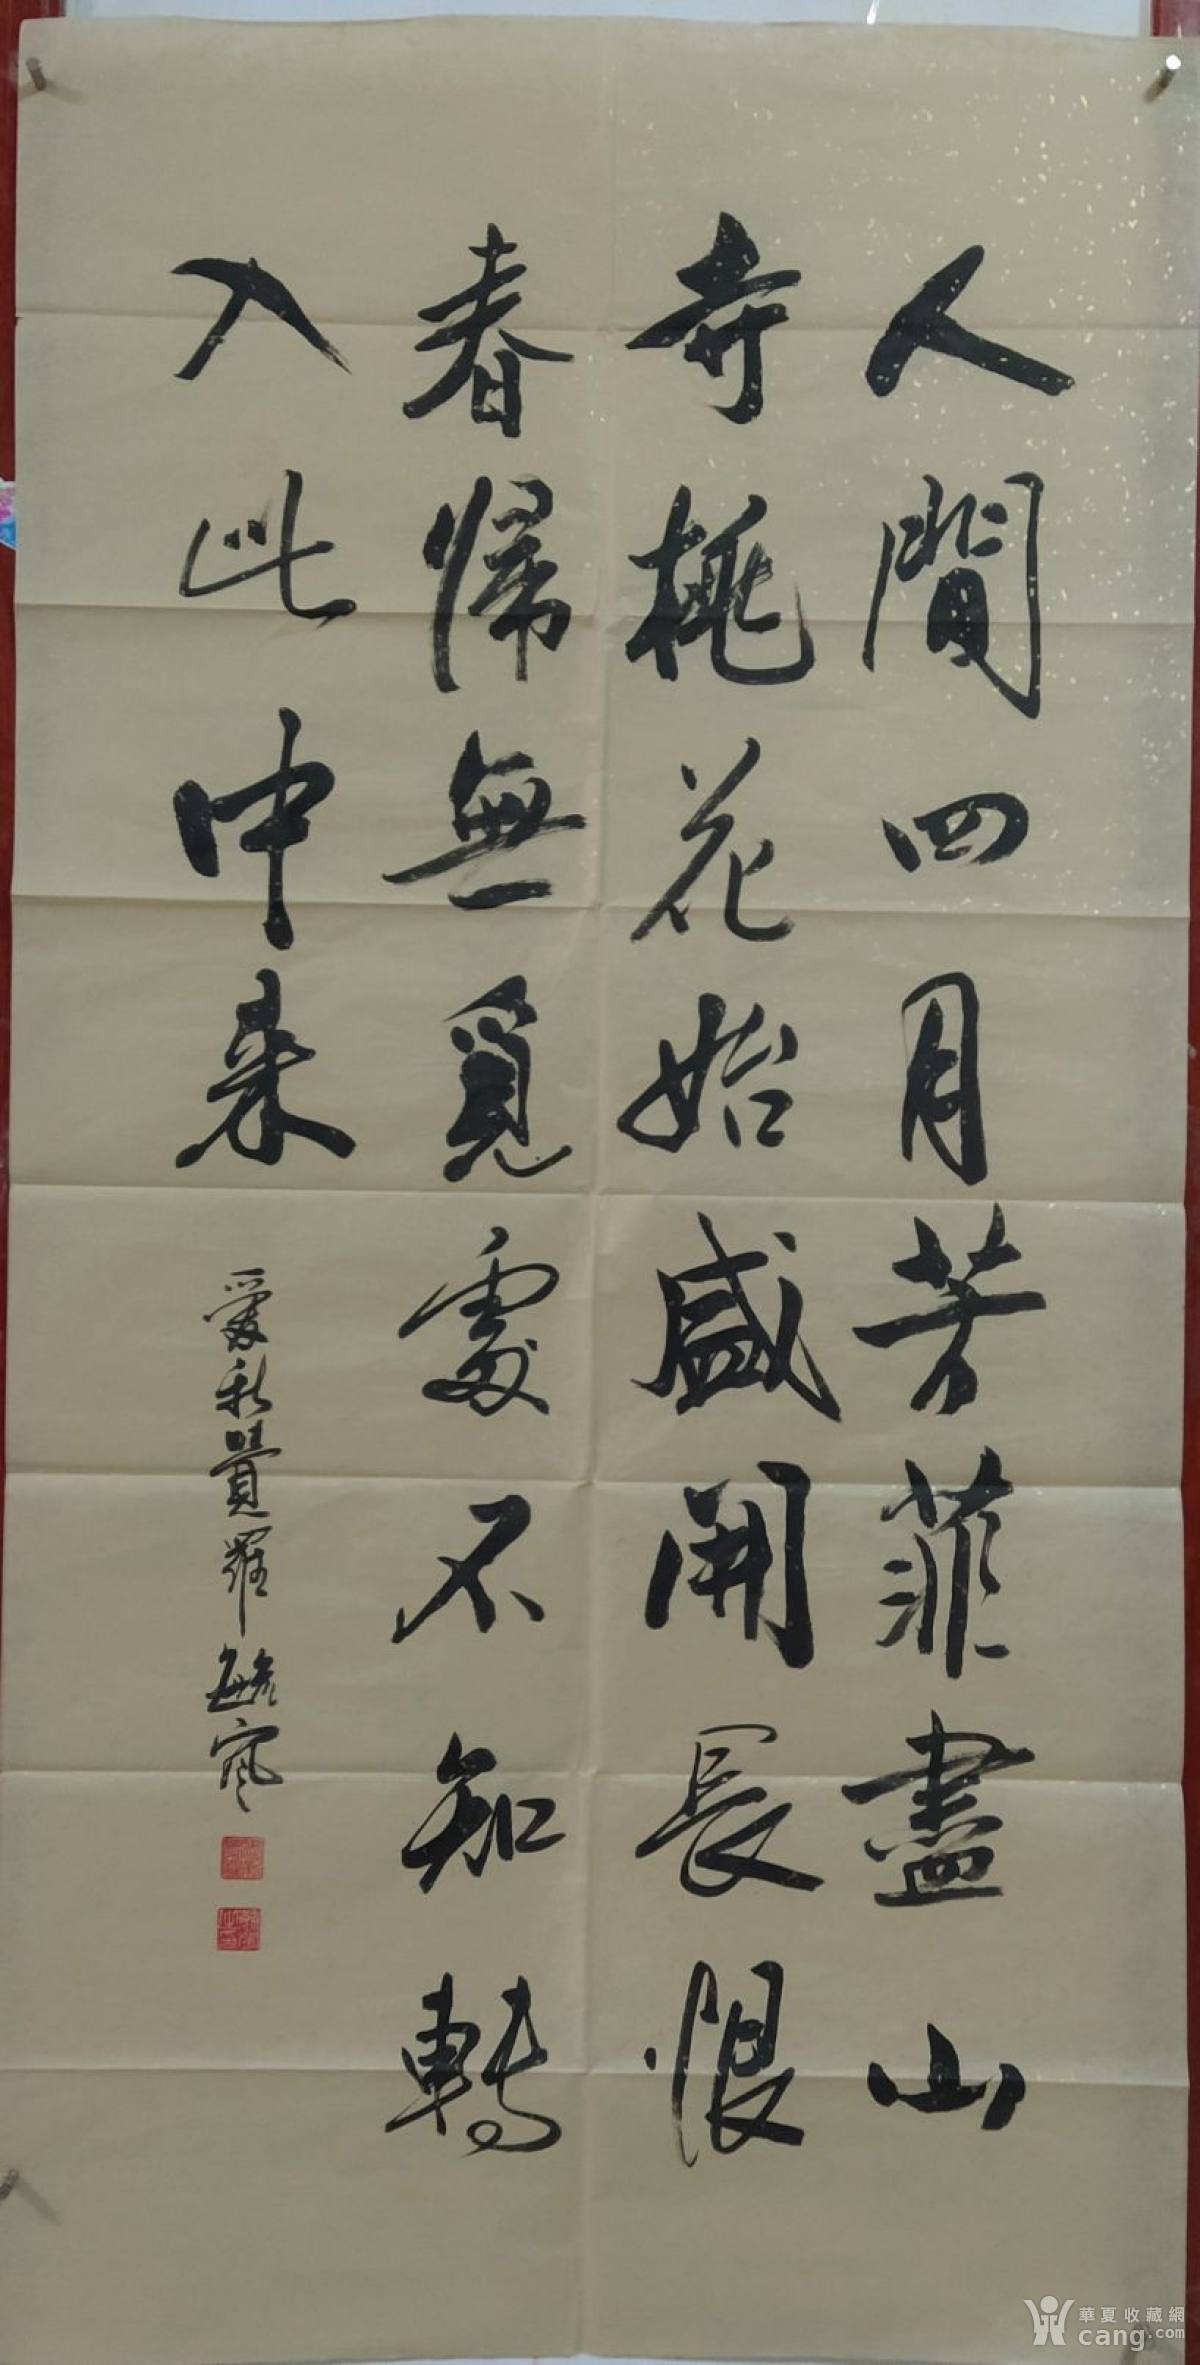 人間四月芳菲盡山
寺桃花始盛開長恨
春歸無覓處不知轉
入此中來
愛新覺羅毓寰
華夏收藏網
cang.com